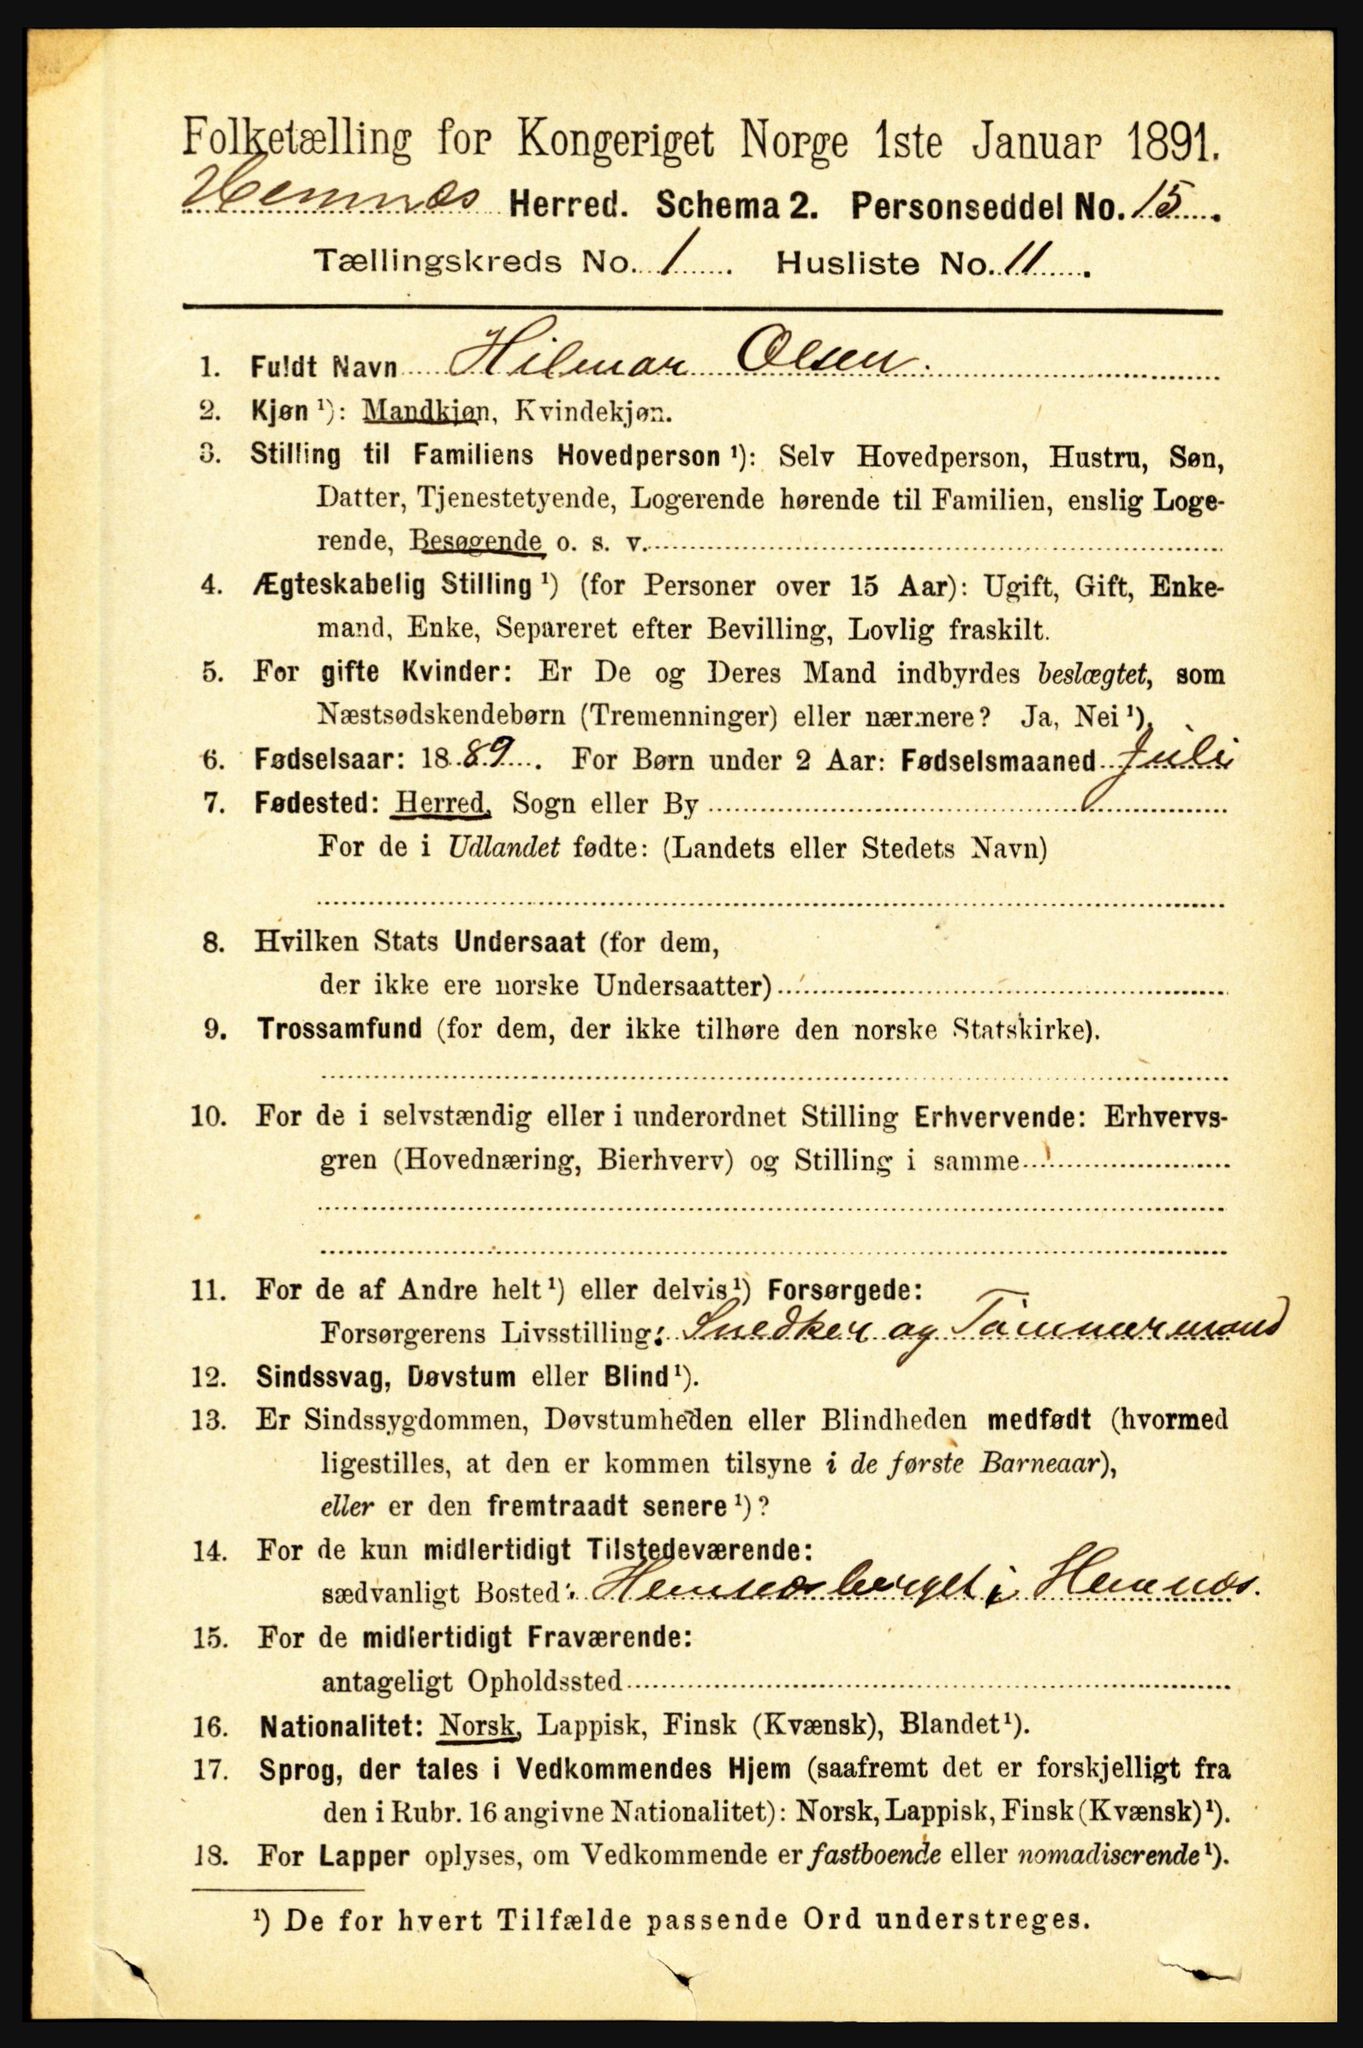 Folketælling for Kongeriget Norge 1ste Januar 1891.
Hemnæs Herred. Schema 2. Personseddel No. 15.
Tællingskreds No. 1. Husliste No. 11.
1. Fuldt Navn Hilmar Olsen.
2. Kjøn ¹): Mandkjøn, Kvindekjøn.
3. Stilling til Familiens Hovedperson ¹): Selv Hovedperson, Hustru, Søn,
Datter, Tjenestetyende, Logerende hørende til Familien, enslig Loge-
rende, Besøgende o. s. v.
4. Ægteskabelig Stilling ¹) (for Personer over 15 Aar): Ugift, Gift, Enke-
mand, Enke, Separeret efter Bevilling, Lovlig fraskilt.
5. For gifte Kvinder: Er De og Deres Mand indbyrdes beslægtet, som
Næstsødskendebørn (Tremenninger) eller nærmere? Ja, Nei ¹).
6. Fødselsaar: 1889. For Børn under 2 Aar: Fødselsmaaned Juli
7. Fødested: Herred, Sogn eller By
For de i Udlandet fødte: (Landets eller Stedets Navn)
8. Hvilken Stats Undersaat (for dem,
der ikke ere norske Undersaatter)
9. Trossamfund (for dem, der ikke tilhøre den norske Statskirke).
10. For de i selvstændig eller i underordnet Stilling Erhvervende: Erhvervs-
gren (Hovednæring, Bierhverv) og Stilling i samme
11. For de af Andre helt ¹) eller delvis ¹) Forsørgede:
Forsørgerens Livsstilling: Snedker og Tømmermand
12. Sindssvag, Døvstum eller Blind ¹).
13. Er Sindssygdommen, Døvstumheden eller Blindheden medfødt (hvormed
ligestilles, at den er kommen tilsyne i de første Barneaar),
eller er den fremtraadt senere ¹)?
14. For de kun midlertidigt Tilstedeværende:
sædvanligt Bosted: Hemnæsberget i Hemnæs.
15. For de midlertidigt Fraværende:
antageligt Opholdssted
16. Nationalitet: Norsk, Lappisk, Finsk (Kvænsk), Blandet ¹).
17. Sprog, der tales i Vedkommendes Hjem (saafremt det er forskjelligt fra
den i Rubr. 16 angivne Nationalitet): Norsk, Lappisk, Finsk (Kvænsk) ¹).
18. For Lapper oplyses, om Vedkommende er fastboende eller nomadiserende ¹).
¹) De for hvert Tilfælde passende Ord understreges.